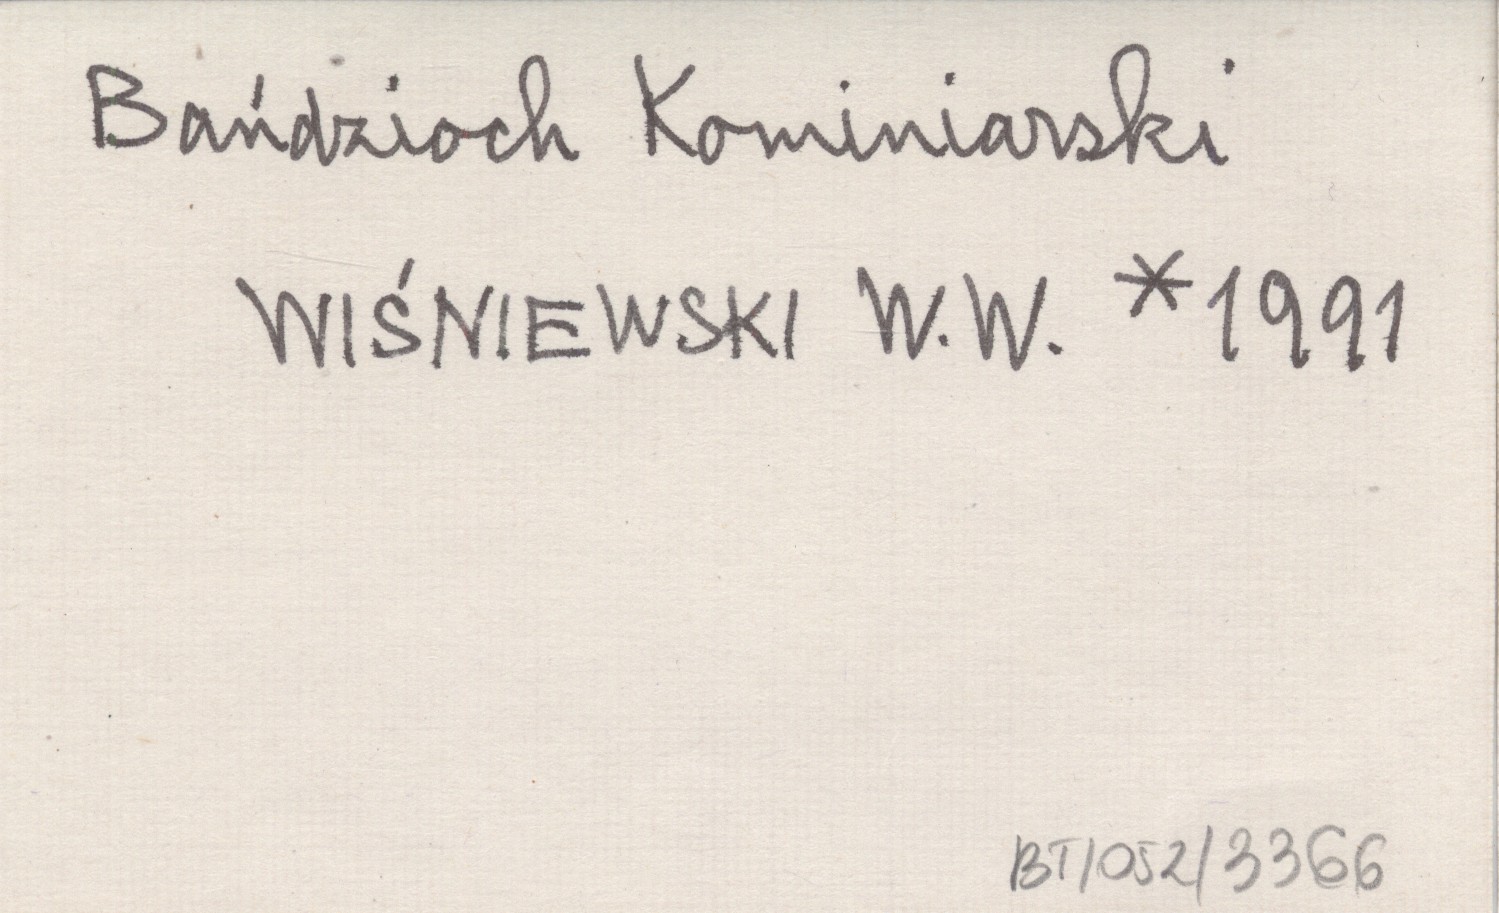 Bańdzioch Kominiarski
WIŚNIEWSKI W.W. *1991
BT/052/3366